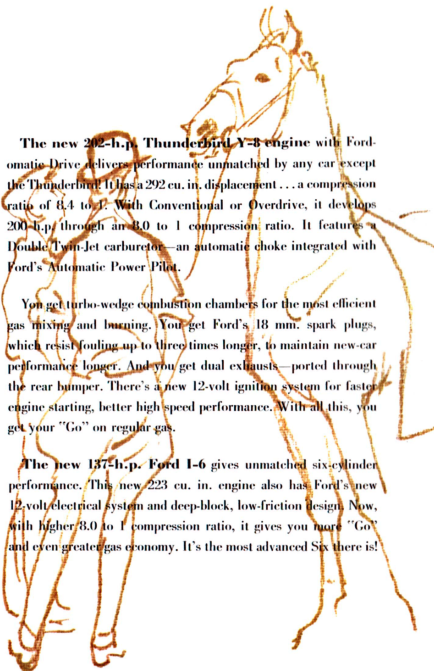 The new 202-h.p. Thunderbird Y-8 engine with Ford-
omatic Drive delivers performance unmatched by any car except
the Thunderbird! It has a 292 cu. in. displacement . . . a compression
ratio of 8.4 to 1. With Conventional or Overdrive, it develops
200-h.p. through an 8.0 to 1 compression ratio. It features a
Double Twin-Jet carburetor—an automatic choke integrated with
Ford's Automatic Power Pilot.
You get turbo-wedge combustion chambers for the most efficient
gas mixing and burning. You get Ford's 18 mm. spark plugs,
which resist fouling up to three times longer, to maintain new-car
performance longer. And you get dual exhausts—ported through
the rear bumper. There's a new 12-volt ignition system for faster
engine starting, better high speed performance. With all this, you
get your "Go" on regular gas.
The new 137-h.p. Ford I-6 gives unmatched six-cylinder
performance. This new 223 cu. in. engine also has Ford's new
12-volt electrical system and deep-block, low-friction design. Now,
with higher 8.0 to 1 compression ratio, it gives you more "Go"
and even greater gas economy. It's the most advanced Six there is!